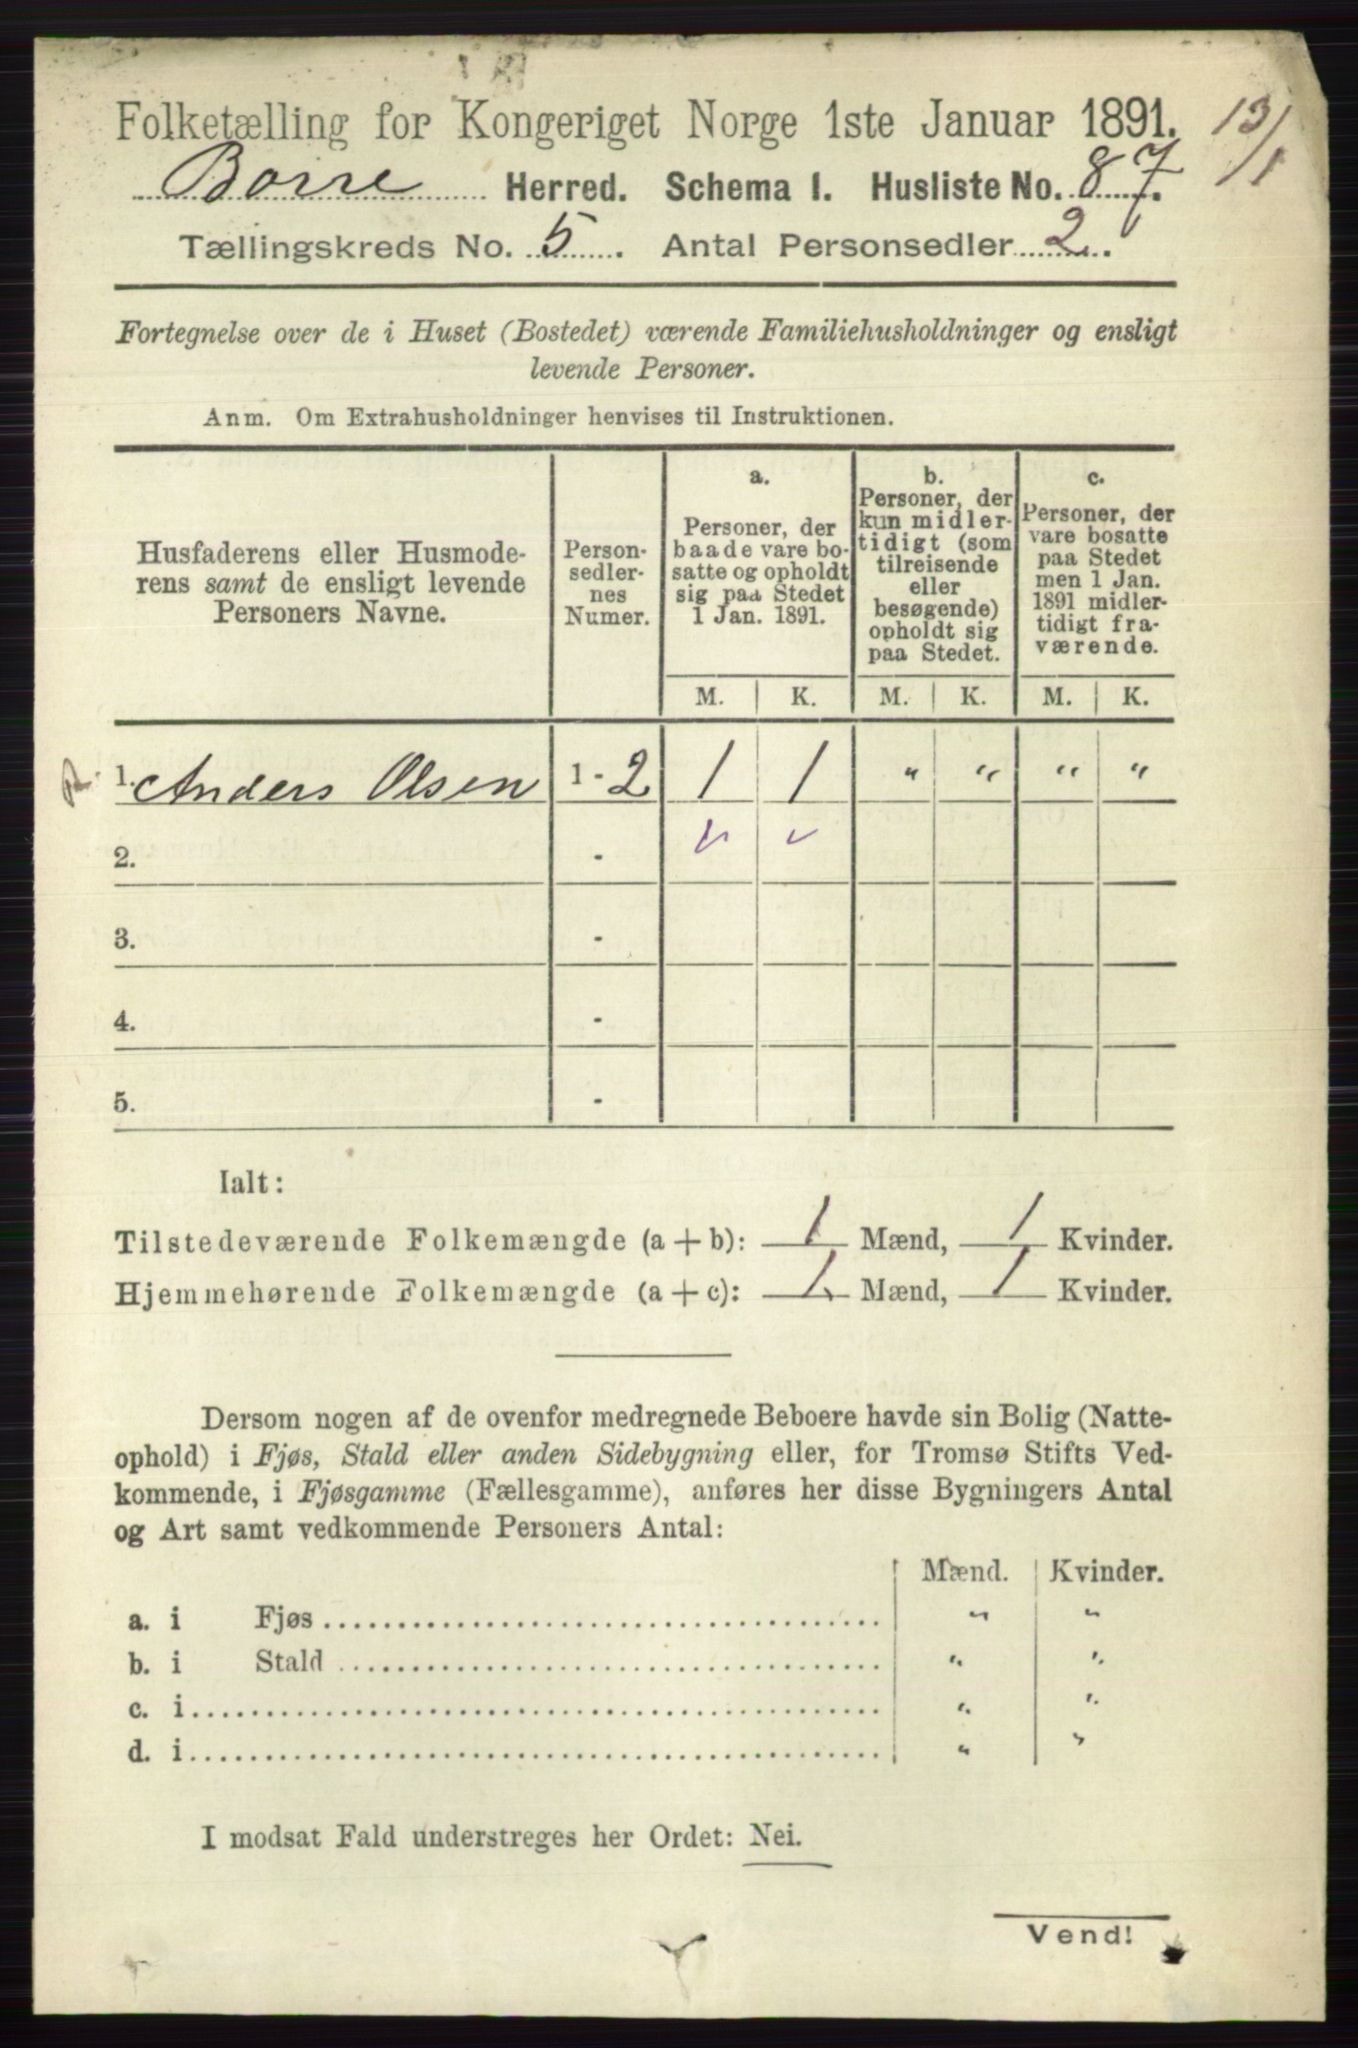 Folketælling for Kongeriget Norge 1ste Januar 1891. 13/1
Borre Herred. Schema I. Husliste No. 87.
Tællingskreds No. 5. Antal Personsedler 2.
Fortegnelse over de i Huset (Bostedet) værende Familiehusholdninger og ensligt
levende Personer.
Anm. Om Extrahusholdninger henvises til Instruktionen.
Husfaderens eller Husmode-
rens samt de ensligt levende
Personers Navne.
Person-
sedler-
nes
Numer.
a.
Personer, der
baade vare bo-
satte og opholdt
sig paa Stedet
1 Jan. 1891.
b.
Personer, der
kun midler-
tidigt (som
tilreisende
eller
besøgende)
opholdt sig
paa Stedet.
c.
Personer, der
vare bosatte
paa Stedet
men 1 Jan.
1891 midler-
tidigt fra-
værende.
M. K. M. K. M. K.
1. Anders Olsen 1 - 2 1 1 " " " "
2. -
3. -
4. -
5. -
Ialt:
Tilstedeværende Folkemængde (a + b): 1 Mænd, 1 Kvinder.
Hjemmehørende Folkemængde (a + c): 1 Mænd, 1 Kvinder.
Dersom nogen af de ovenfor medregnede Beboere havde sin Bolig (Natte-
ophold) i Fjøs, Stald eller anden Sidebygning eller, for Tromsø Stifts Ved-
kommende, i Fjøsgamme (Fællesgamme), anføres her disse Bygningers Antal
og Art samt vedkommende Personers Antal:
Mænd. Kvinder.
a. i Fjøs " "
b. i Stald " "
c. i " "
d. i " "
I modsat Fald understreges her Ordet: Nei.
Vend!